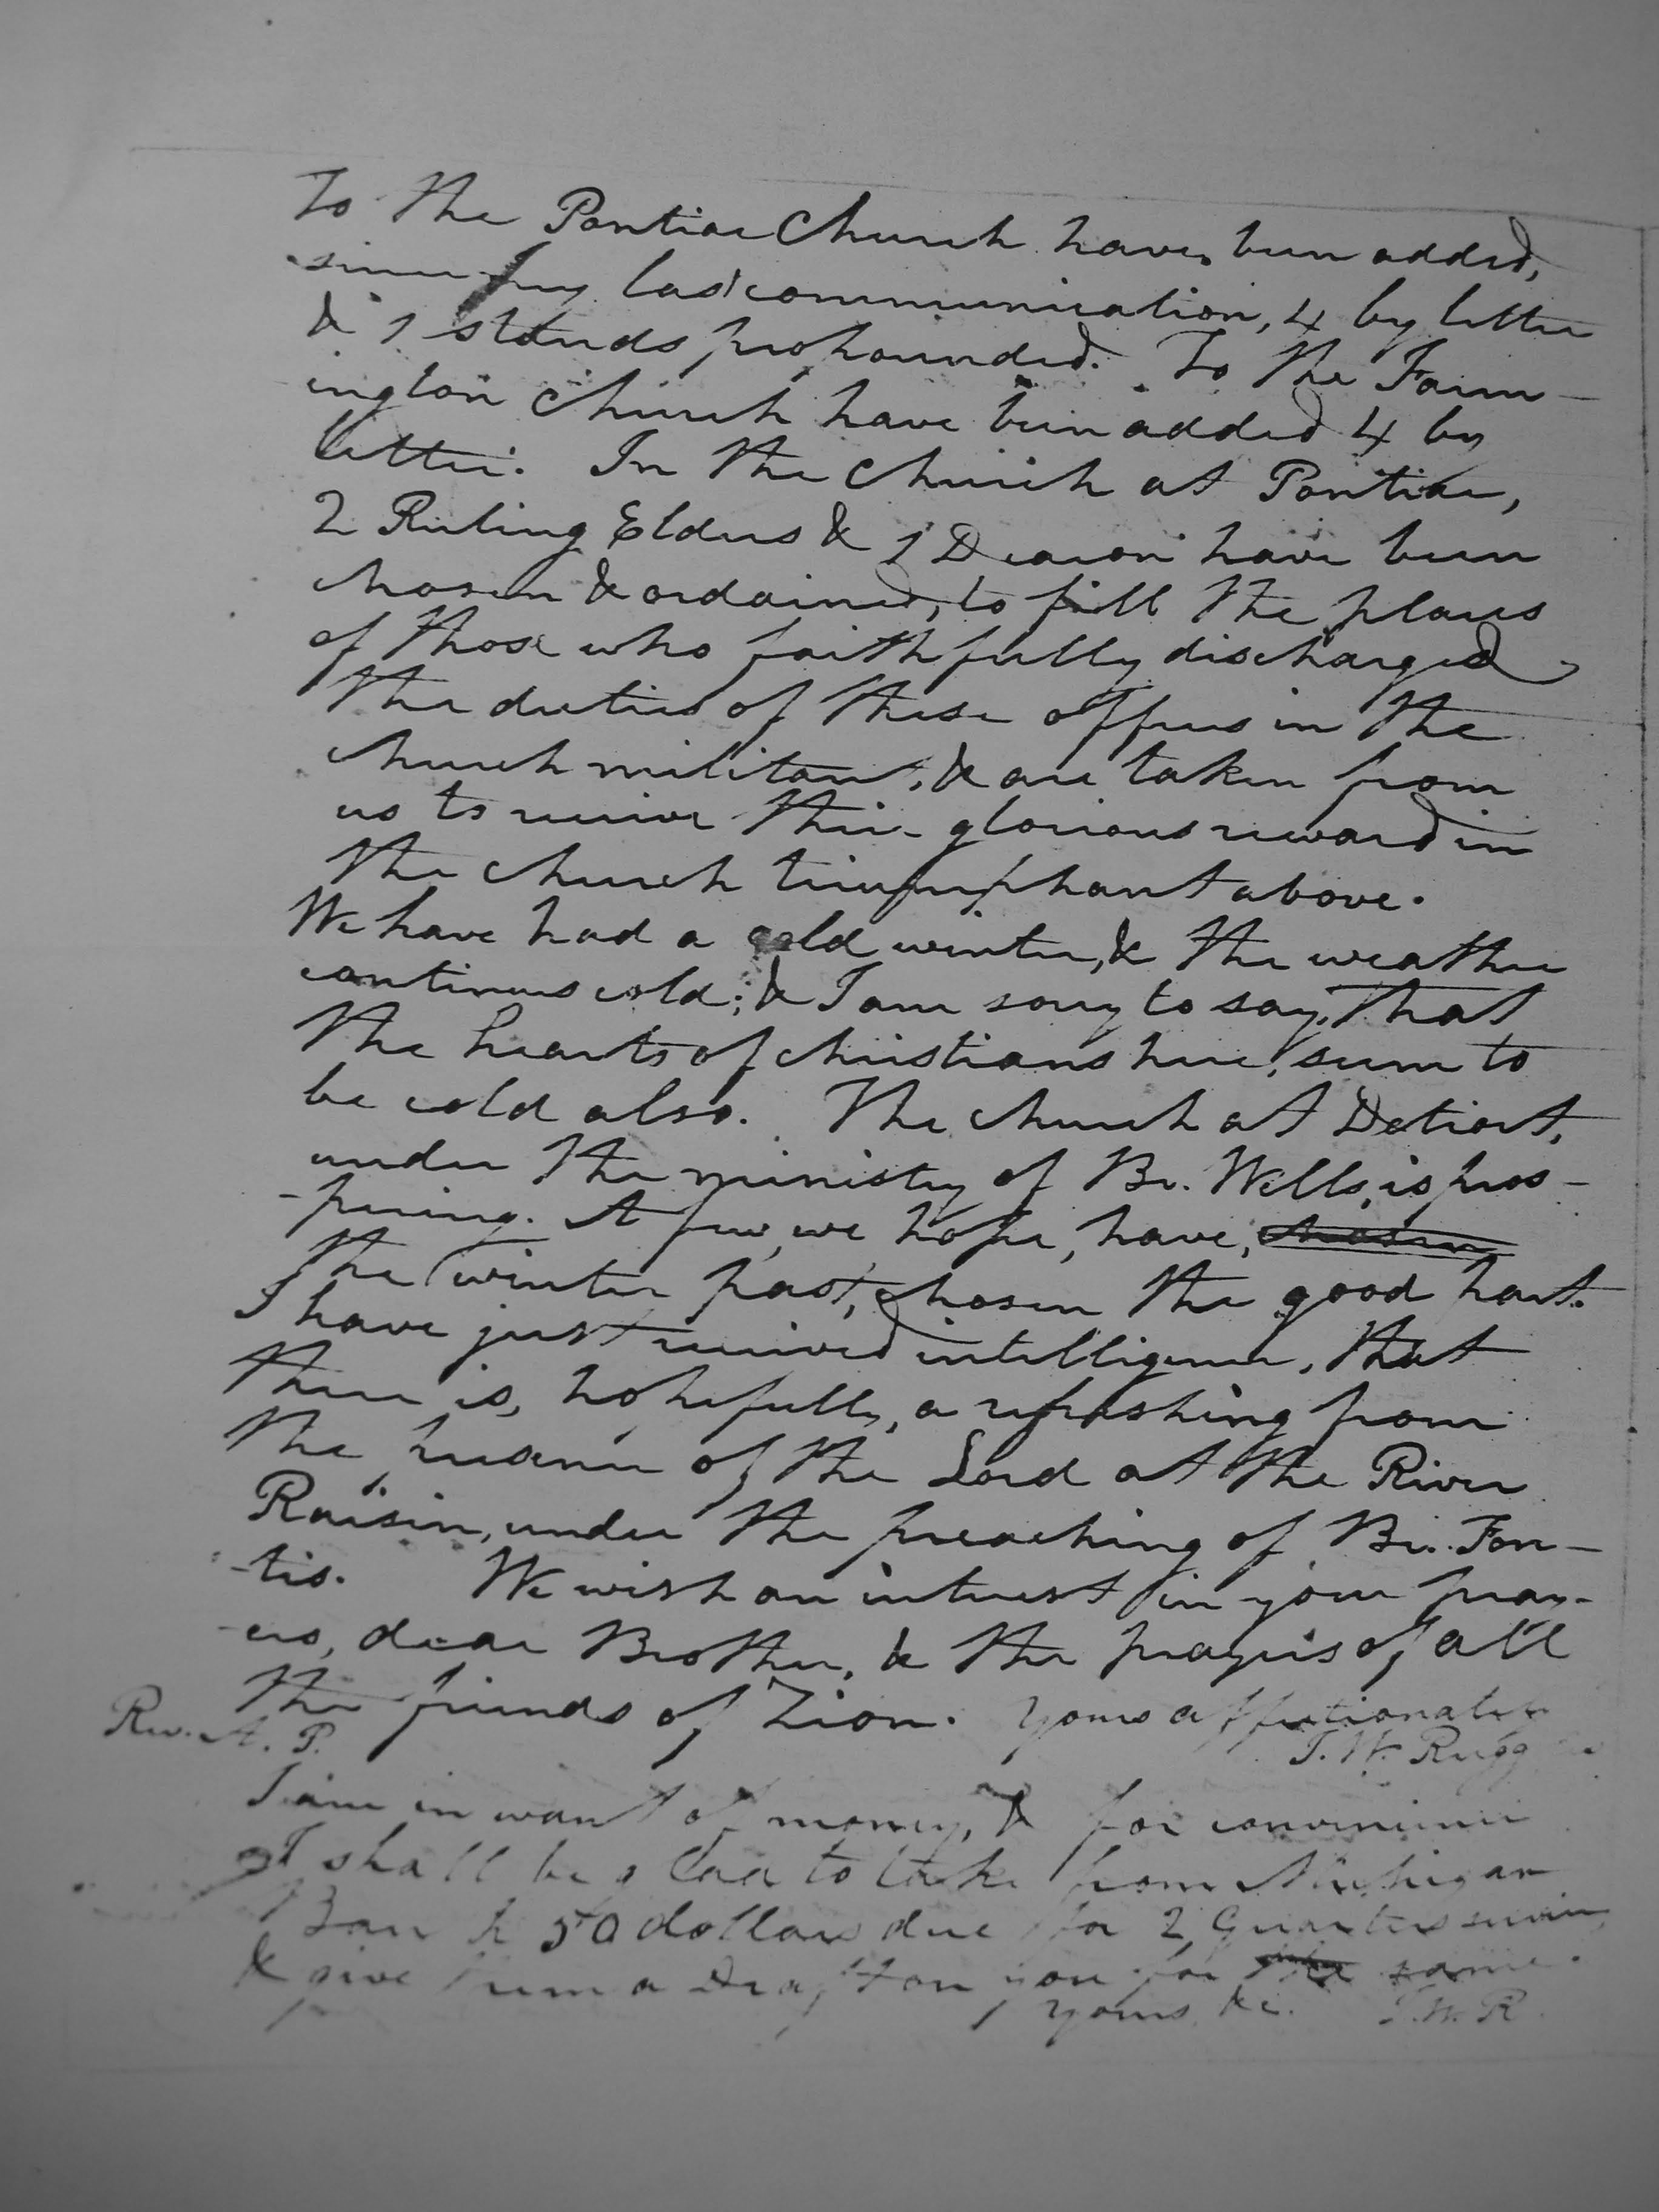 To the Pontiac Church have been added,
since my last communication, 4 by letter
& 1 stands propounded. To the Farm-
ington Church have been added 4 by
letter. In the Church at Pontiac,
2 Ruling Elders & 1 Deacon have been
chosen & ordained, to fill the places
of those who faithfully discharged
the duties of these offices in the
church militant, & are taken from
us to receive their glorious reward in
the church triumphant above.
We have had a cold winter, & the weather
continues cold; & I am sorry to say, that
the hearts of christians here, seem to
be cold also. The church at Detroit,
under the ministry of Br. Wells, is pros-
-pering. A few, we hope, have, chosen
the winter past, chosen the good part.
I have just received intelligence, that
there is, hopefully, a refreshing from
the presence of the Lord at the River
Raisin, under the preaching of Br. Fon-
-tis. We wish an interest in your pray-
-ers, dear Brother, & the prayers of all
the friends of Zion. Yours affectionately
Rev. A. P. T. W. Rugg
I am in want of money, & for convenience
I shall be glad to take from Michigan
Bank 50 dollars due for 2 Quarters service
& give them a Draft on you for the same.
yours, &c. T. W. R.